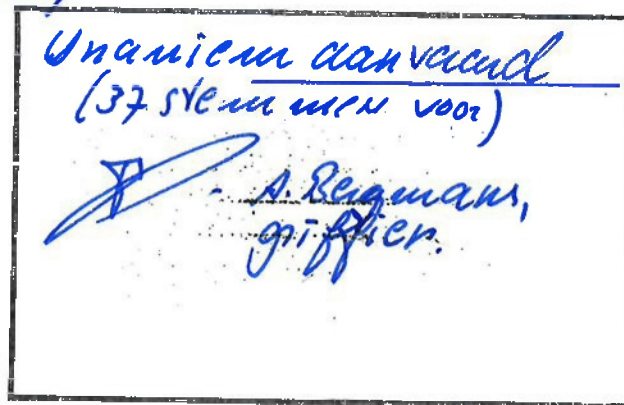 Unaniem aanvaard
(37 stemmen voor)
A. Bergmans,
griffier.